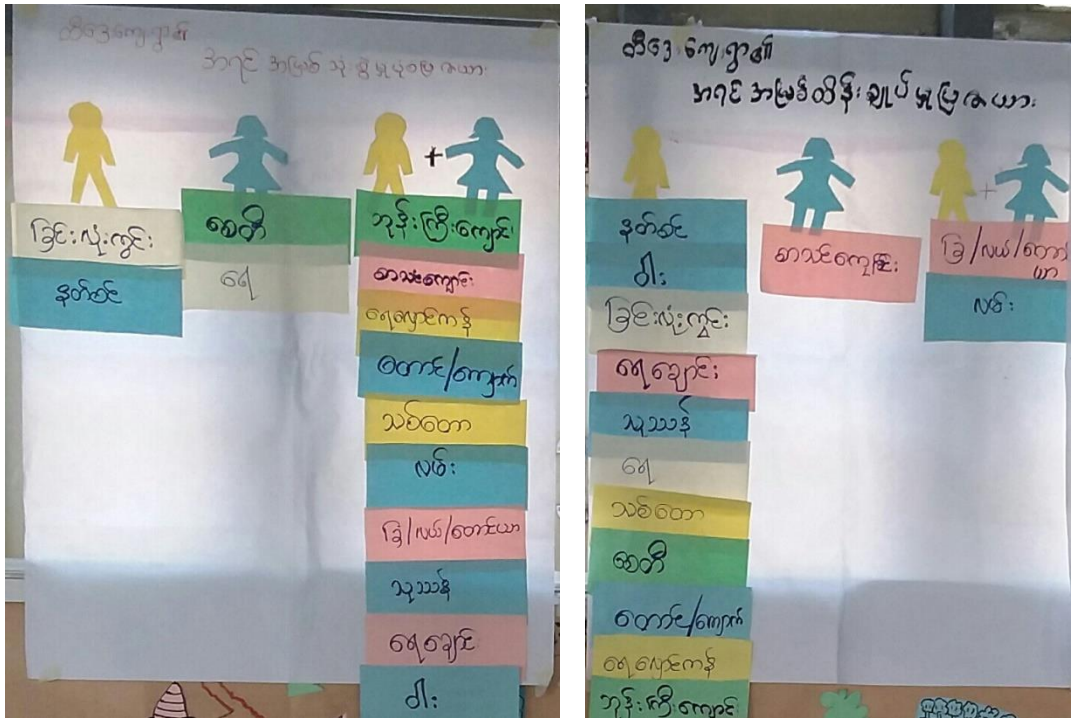 တီဒေးကျေးရွာ၏
အရင်းအမြစ် သုံးစွဲမှုပုံစံပြဇယား
+
ခြင်းလုံးကွင်း
နတ်စင်
စေတီ
ရေ
ဘုန်းကြီးကျောင်း
စာသင်ကျောင်း
ရေလှောင်ကန်
တောင်/ကျောက်
သစ်တော
လမ်း
ခြံ/လယ်/တောင်ယာ
သုဿန်
ရေချောင်း
ဝါး
တီဒေးကျေးရွာ၏
အရင်းအမြစ်ထိန်းချုပ်မှုပြဇယား
+
နတ်စင်
ဝါး
ခြင်းလုံးကွင်း
ရေချောင်း
သုဿန်
ရေ
သစ်တော
စေတီ
တောင်/ကျောက်
ရေလှောင်ကန်
ဘုန်းကြီးကျောင်း
စာသင်ကျောင်း
ခြံ/လယ်/တောင်
ယာ
လမ်း